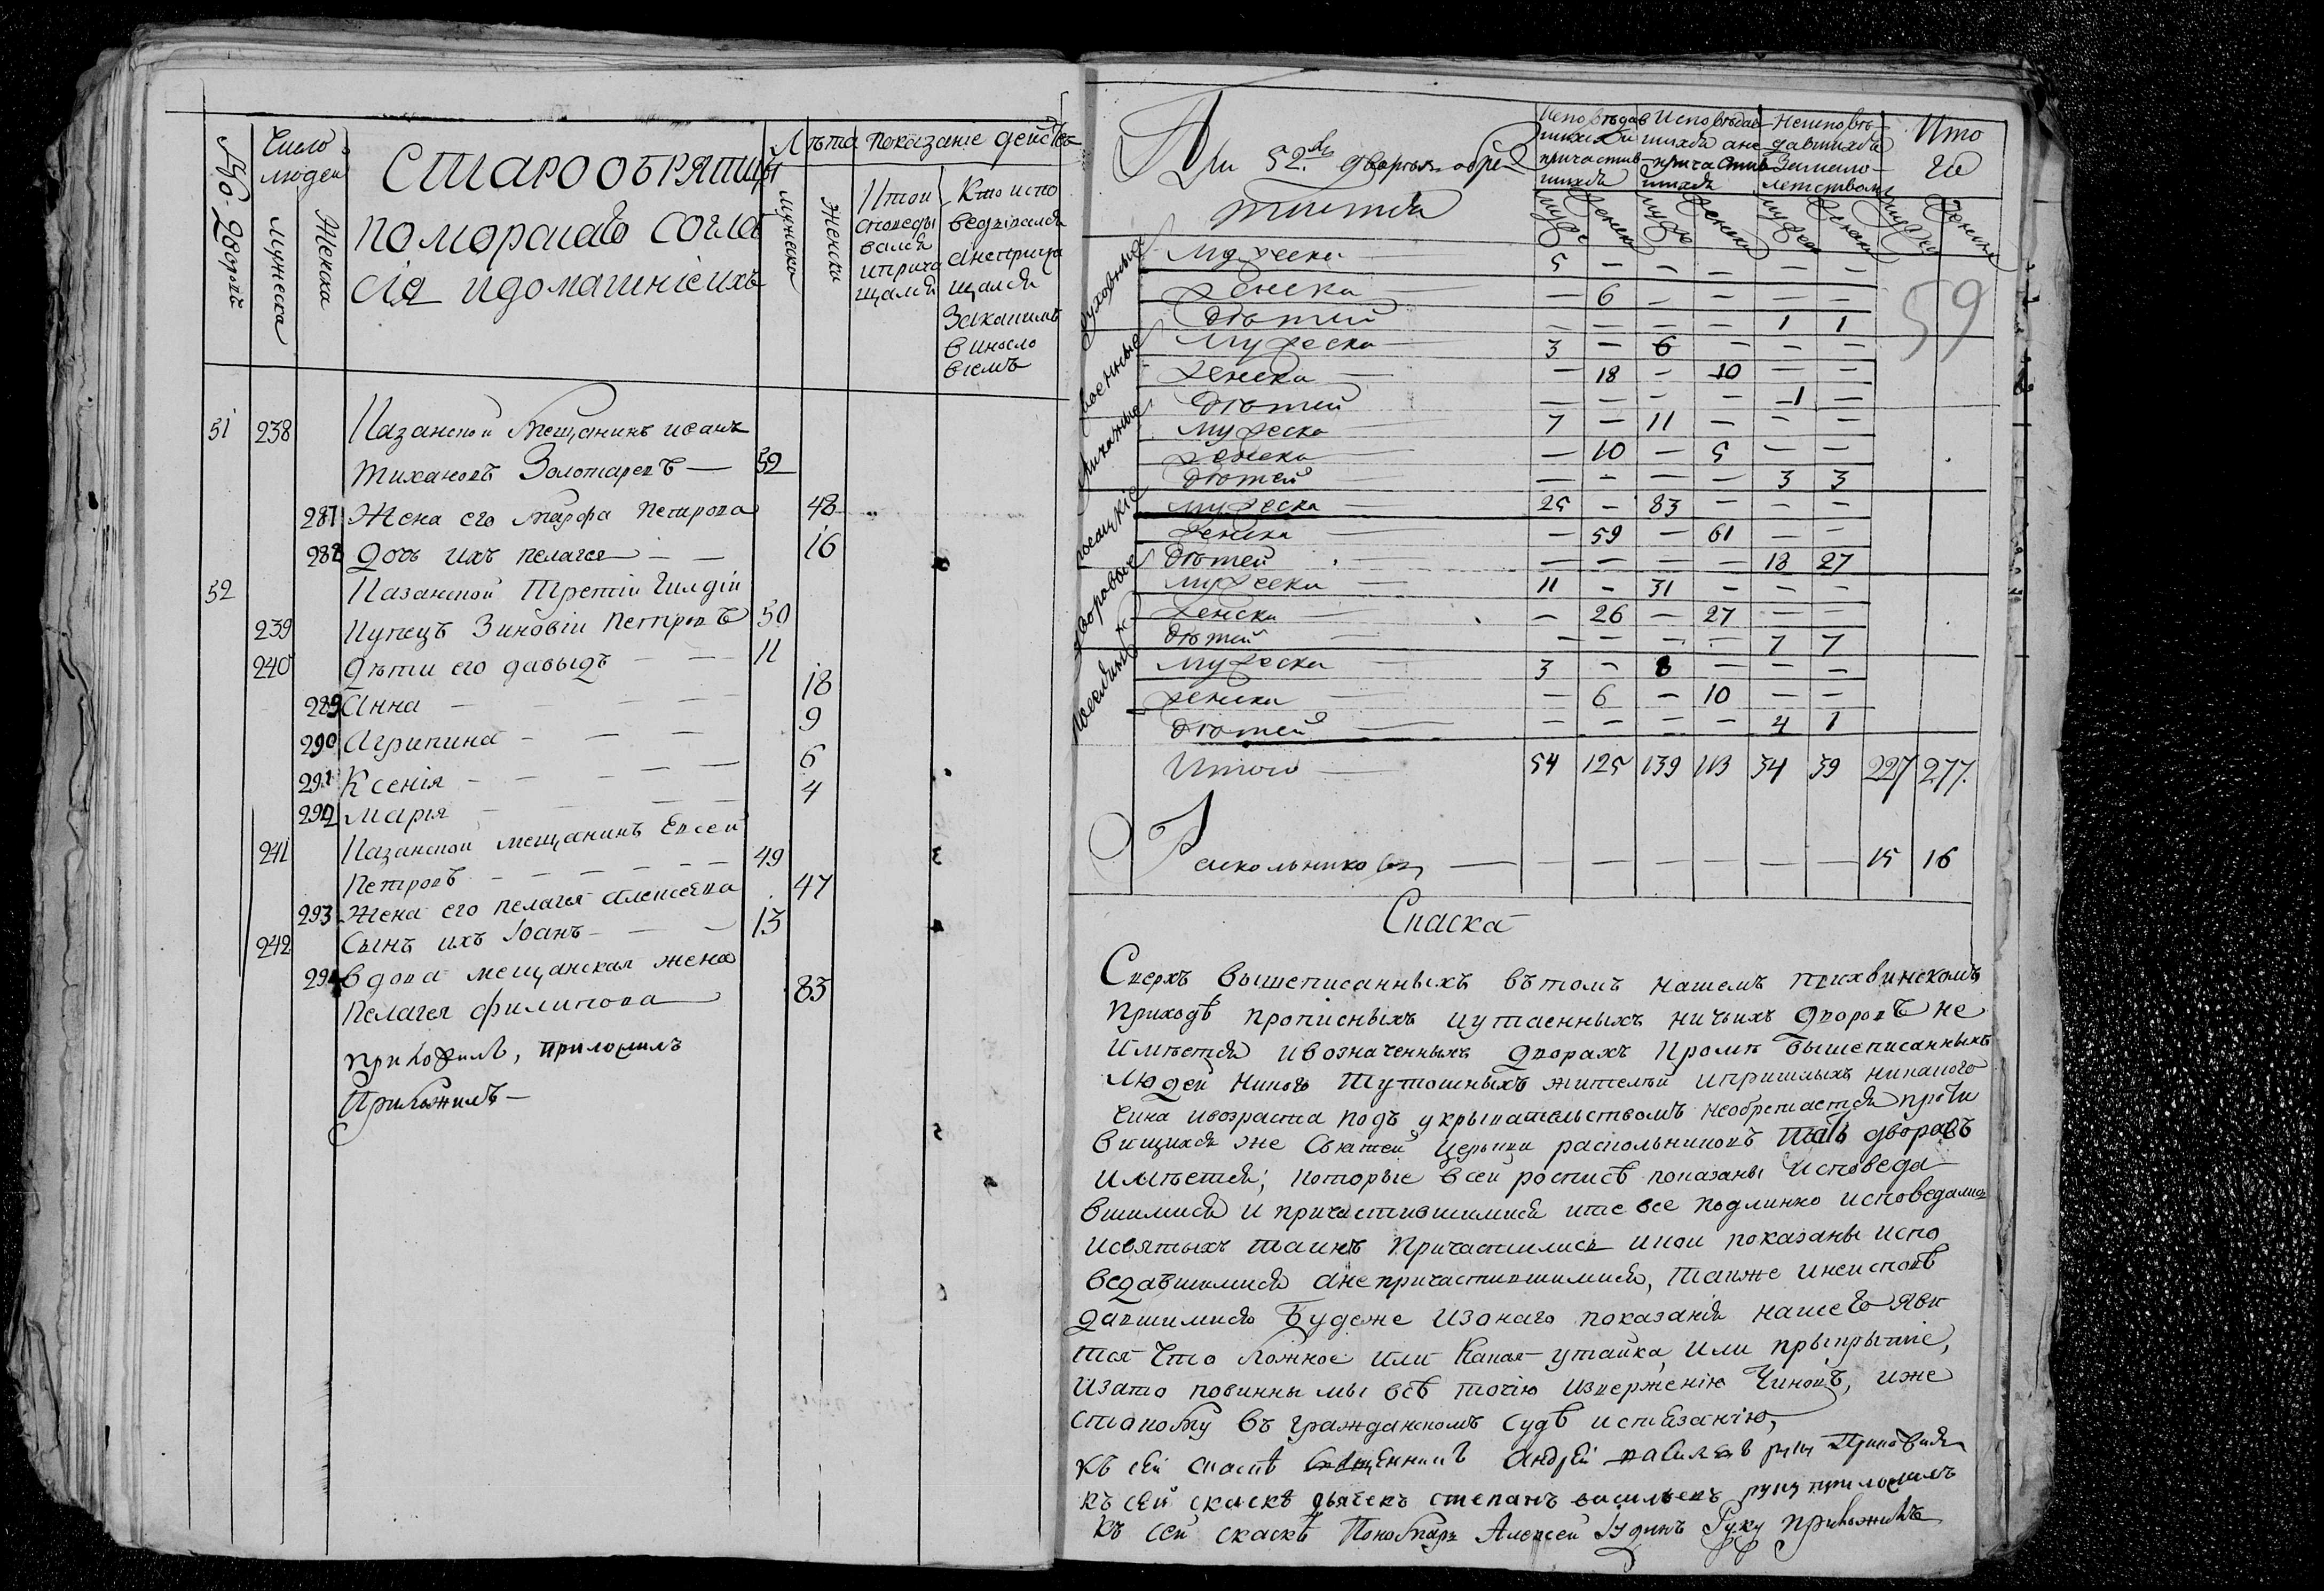 Число людей
Дво-
Дворовъ
Мужеска
Женска
Старообрятцы
поморскаго согла
сія идомашніеихъ
Лѣта
Мужеска
Женски
показаніе действъ
Ктои
споведы
вался
иприча
щался
Кто испо
ведывался
анеприча
щался
Закакимъ
виносло
віемъ
51 238 Казанской мещанинъ иванъ
Тихановъ Золотаревъ — 52
287 Жена его марфа петрова 48
288 Дочь ихъ пелагея — — 16
52 Казанской Третіи Гилдіи
239 Купецъ Зиновіи Петровъ 50
240 дѣти его давыдъ — — 11
289 Анна — — — 18
290 Агрипина — — — 9
291 Ксенія — — — 6
292 Марія — — — 4
241 Казанской мещанинъ Евсеи
Петровъ — — — 49
293 Жена его пелагея алексеева 47
242 Сынъ ихъ Іоанъ — — 13
294 вдова мещанская жена
Пелагея филипова 83
приложилъ, приложилъ
Приложилъ —
При 52хъ дворахъ обре
таится
Исповѣдав
шихся и
причастив
шихся
Исповѣдав
шихся ане
причастив
шихся
Неисповѣ
давшихся
Замало
летствомъ
Ито
го
муже женск муже женска мужеск женска мужеска женска
59
Духовные Мужеска — 5 — — — — —
Женска — 6 — — — —
Дѣтей — — — — 1 1
военные Мужеска — 3 — 6 — — —
Женска — — 18 — 10 — —
Дѣтей — — — — 1 —
приказные Мужеска 7 — 11 — — —
Женска — 10 — 5 — —
Дѣтей — — — — 3 3
посацкіе Мужеска — 25 — 83 — — —
Женска — — 59 — 61 — —
Дѣтей — — — — 18 27
дворовые Мужеска — 11 — 31 — — —
Женска — — 26 — 27 — —
Дѣтей — — — — 7 7
поселяне Мужеска — 3 — 8 — — —
Женска — — 6 — 10 — —
Дѣтей — — — — 4 1
Итого — 54 125 139 113 34 39 227 277.
Раскольниковъ — — — — — — — 15 16
Скаска
Сверхъ вышеписанныхъ вътомъ нашемъ тихвинскомъ
приходѣ прописныхъ иутаенныхъ ничьихъ дворовъ не
имѣется ивозначенныхъ дворахъ кромѣ вышеписанныхъ
людей никого тутошныхъ жителей ипришлыхъ никакого
чина ивозраста подъ укрывательствомъ необретается проти
вищихся же святей церькви раскольниковъ дворовъ
имѣется; которые всей росписѣ показаны исповеда
вшимися и причастившимися ите все подлинно исповедались
исвятыхъ таинъ причастились икои показаны испо
ведавшимися анепричастившимися, также инеисповѣ
давшимися Будеже изонаго показанія нашего яви
тся что ложное или какая утайка или прыкрытіе,
изато повинны мы всѣ точію изверженію чиновъ, иже
стокому въ гражданскомъ судѣ истязанію,
къ сей скаскѣ священникъ Андрей руку приложилъ
къ сей скаскѣ дьячекъ степанъ васильевъ руку приложилъ
Къ сей скаскѣ Пономарь Алексей Юдинъ Руку приложилъ